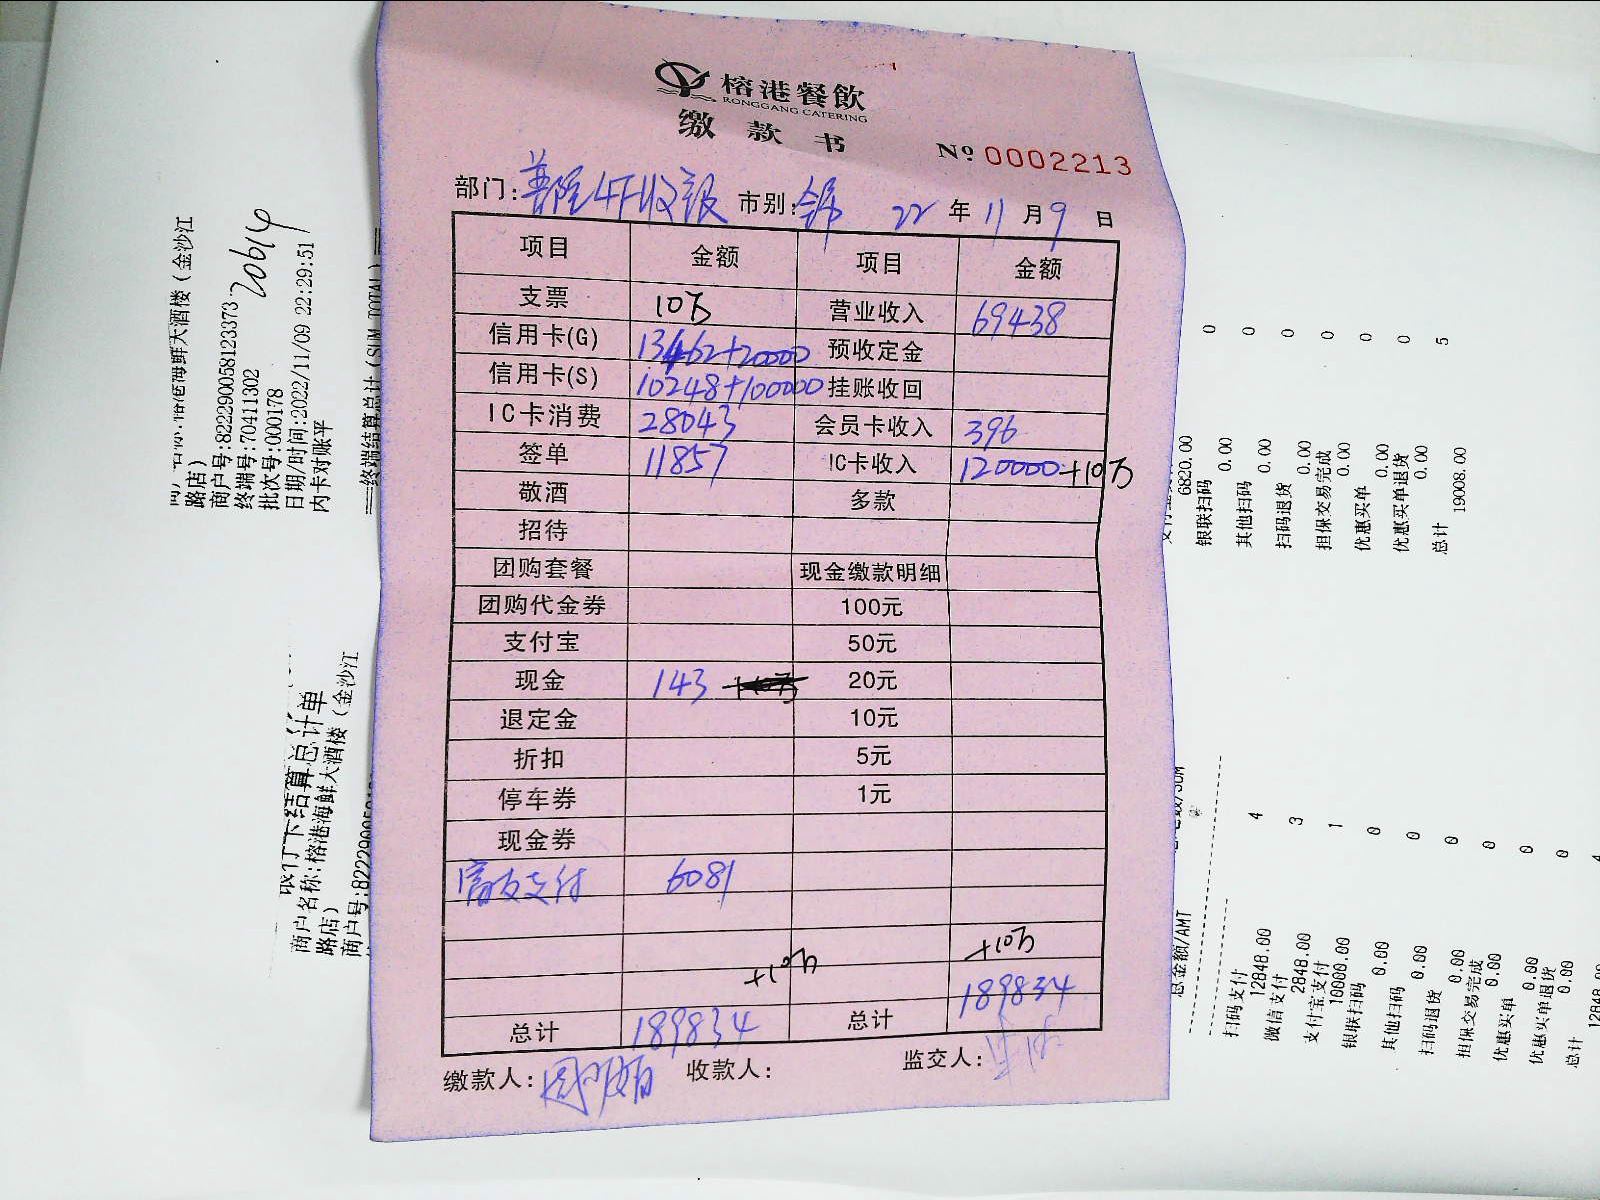 榕港餐飲
RONGGANG CATERING
缴款书
№ 0002213
部门: 4F收银 市别: 22年11月9日
项目 金额 项目 金额
支票 10万 营业收入 69438
信用卡(G) 13462+20000 预收定金
信用卡(S) 10248+100000 挂账收回
IC卡消费 28043 会员卡收入 396
签单 11857 IC卡收入 120000+10万
敬酒 多款
招待
团购套餐 现金缴款明细
团购代金券 100元
支付宝 50元
现金 143 20元
退定金 10元
折扣 5元
停车券 1元
现金券
富友支付 6081
+10万 +10万
总计 189834 总计 189834
缴款人: 收款人: 监交人:
海鲜大酒楼(金沙江
路店)
商户号:822290058123373
终端号:70411302
批次号:000178
日期/时间:2022/11/09 22:29:51
内卡对账平
20614
终端结算总计(SUM TOTAL)
结算总计单
商户名称:榕港海鲜大酒楼(金沙江
路店)
商户号:
6820.00
银联扫码 0
0.00
其他扫码 0
0.00
扫码退货 0
0.00
担保交易完成 0
0.00
优惠买单 0
0.00
优惠买单退货 0
0.00
总计 5
19008.00
总金额/AMT
扫码支付 4
12848.00
微信支付 3
2848.00
支付宝支付 1
10000.00
银联扫码 0
0.00
其他扫码 0
0.00
扫码退货 0
0.00
担保交易完成 0
0.00
优惠买单 0
0.00
优惠买单退货 0
0.00
总计 4
12848.00